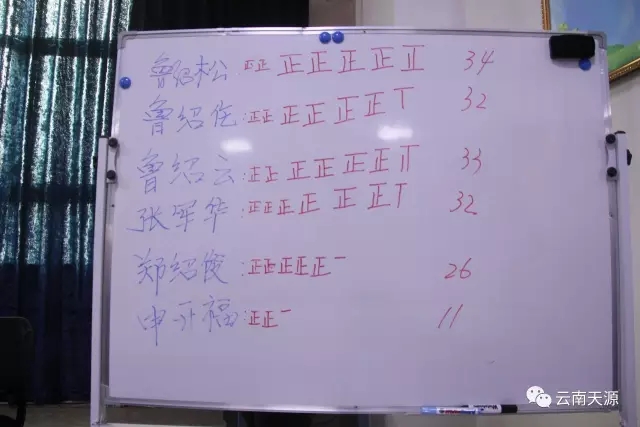 鲁绍松 正正 正正正正正 34
鲁绍伍:正正 正正正正丅 32
鲁绍云:正正 正正正正 33
张军华:正正正正 正正丅 32
郑绍俊:正正正正正一 26
申开福:正正一 11
云南天源